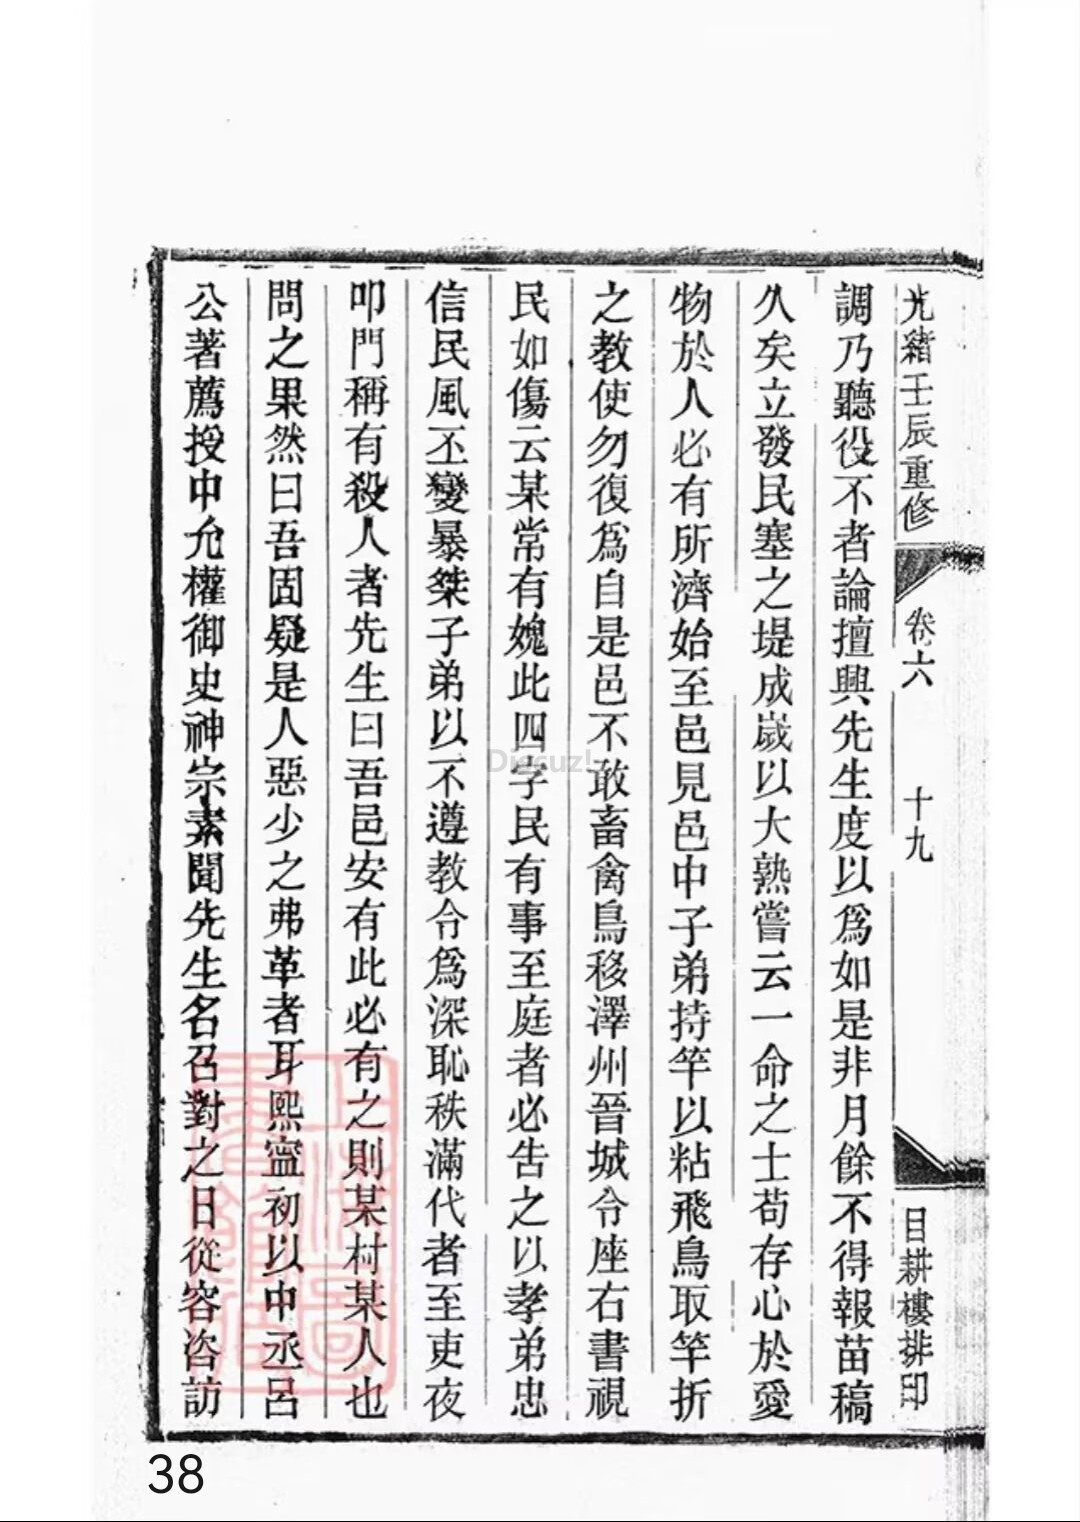 光緒壬辰重修 卷六 十九 目耕樓排印
調乃聽役不者論擅興先生度以爲如是非月餘不得報苗稿
久矣立發民塞之堤成歲以大熟嘗云一命之士苟存心於愛
物於人必有所濟始至邑見邑中子弟持竿以粘飛鳥取竿折
之教使勿復爲自是邑不敢畜禽鳥移澤州晉城令座右書視
民如傷云某常有媿此四字民有事至庭者必告之以孝弟忠
信民風丕變暴桀子弟以不遵教令爲深恥秩滿代者至吏夜
叩門稱有殺人者先生曰吾邑安有此必有之則某村某人也
問之果然曰吾固疑是人惡少之弗革者耳熙寍初以中丞呂
公著薦授中允權御史神宗素聞先生名召對之日從容咨訪
上海圖
書館藏
Discuz!
38